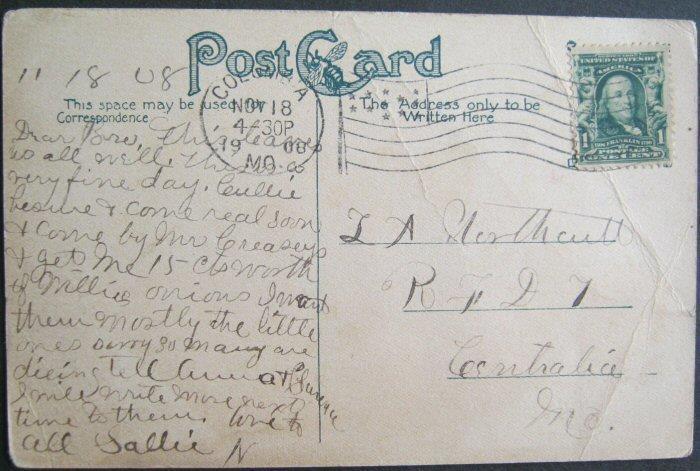 Post Card
11 18 08
This space may be used for
Correspondence
The Address only to be
Written Here
COLUMBIA
NOV 18
4-30P
19 08
MO.
UNITED STATES OF
1 1
POSTAGE
ONE CENT
Dear this leaves
us all well. this is a
very fine day.
be sure & come real soon
& come by Mr Creaseys
& get me 15 cts worth
of Willies onions I want
them mostly the little
ones sorry so many are
dieing tell Anna &
I will write more next
time to them. love to
all Sallie N
L A Northcutt
R F D 1
Centralia
Mo.